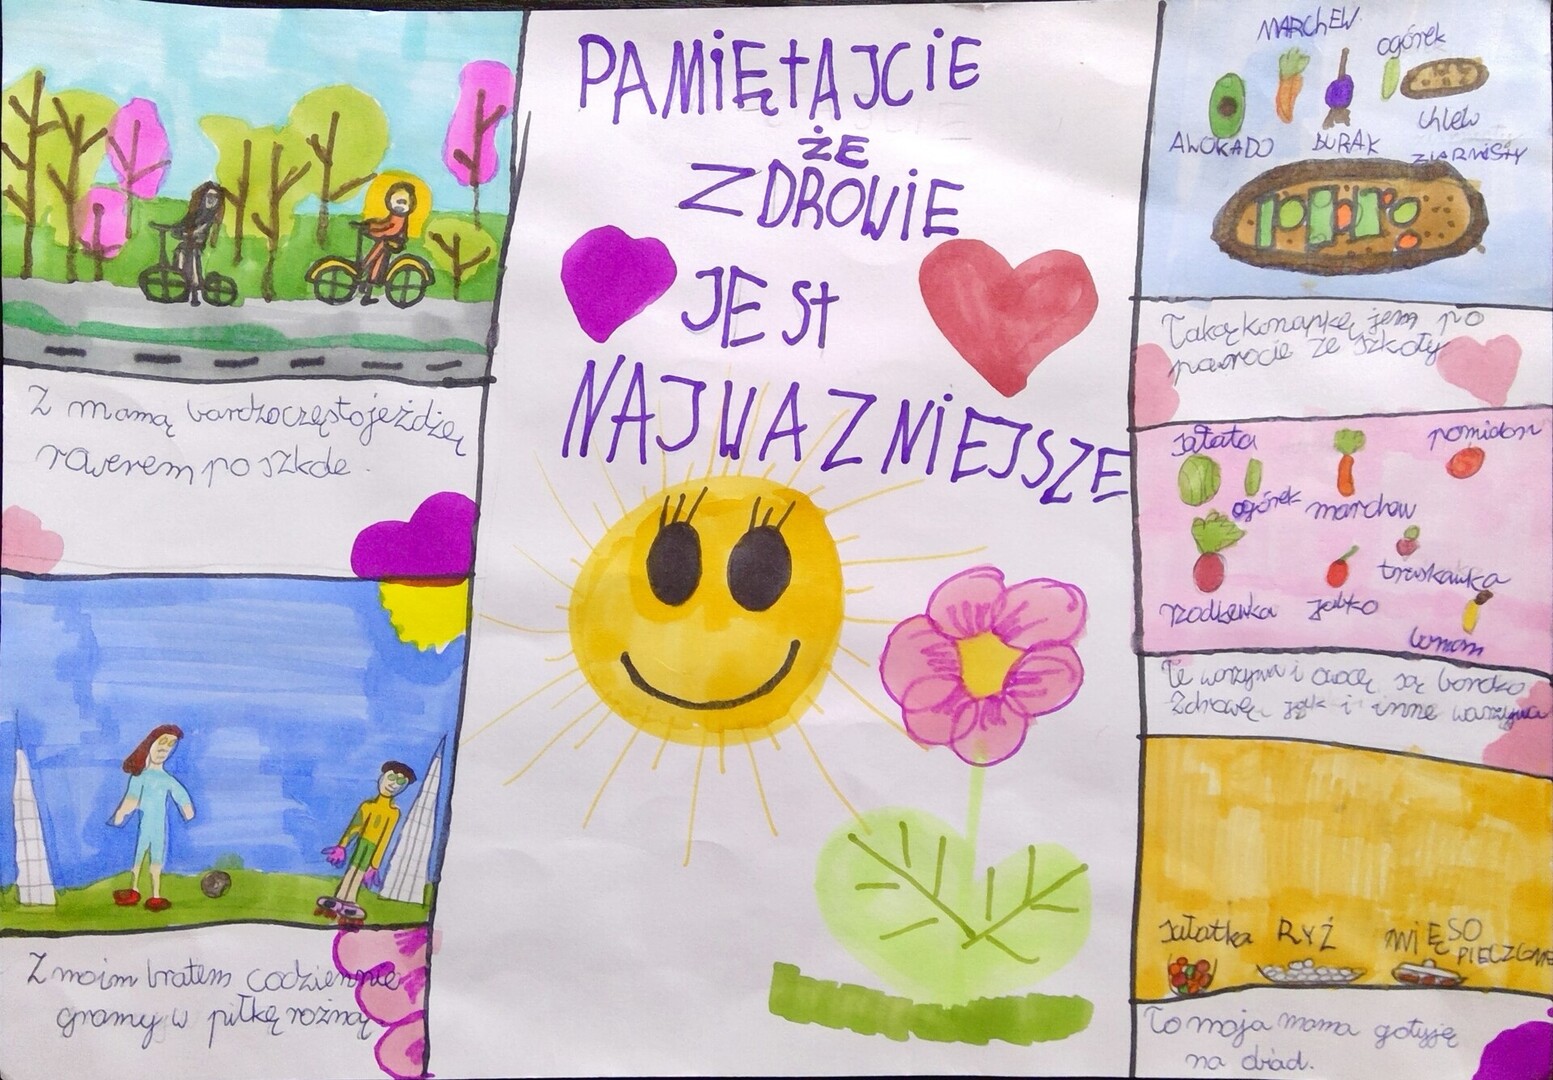 PAMIĘTAJCIE
ŻE
ZDROWIE
JEST
NAJWAZNIEJSZE
Z mamą bardzo często jeżdżę
rowerem po szkole.
Z moim bratem codziennie
gramy w piłkę nożną
MARCHEW
ogórek
AWOKADO
BURAK
chleb
ZIARNISTY
Taką kanapkę jem po
powrocie ze szkoły
sałata
pomidor
ogórek
marchew
truskawka
rzodkewka
jabko
banan
Te warzywa i owocę są bardzo
Zdrowe jak i inne warzywa
sałatka
RYŻ
MIĘSO
PIECZONE
To moja mama gotuję
na obiad.